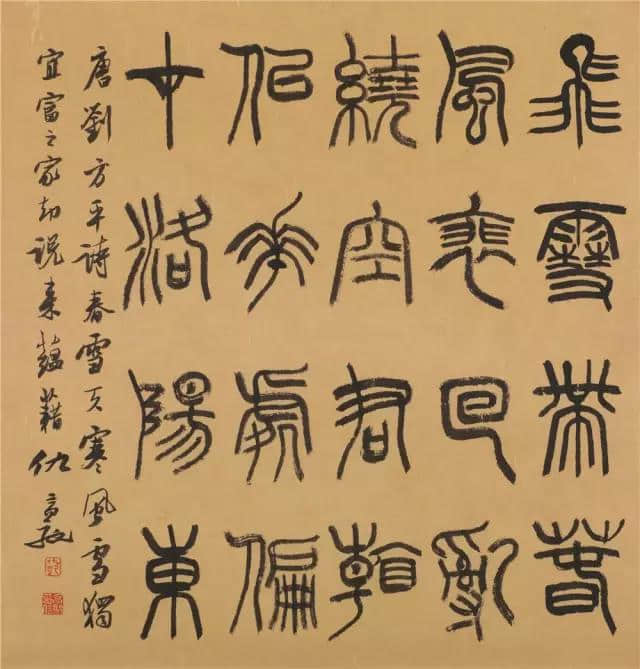 飛雪帶春
風裴回亂
繞空君看
似花處偏
在洛陽東
唐劉方平詩春雪天寒風雪獨
宜富之家却说来蘊藉仇高馳